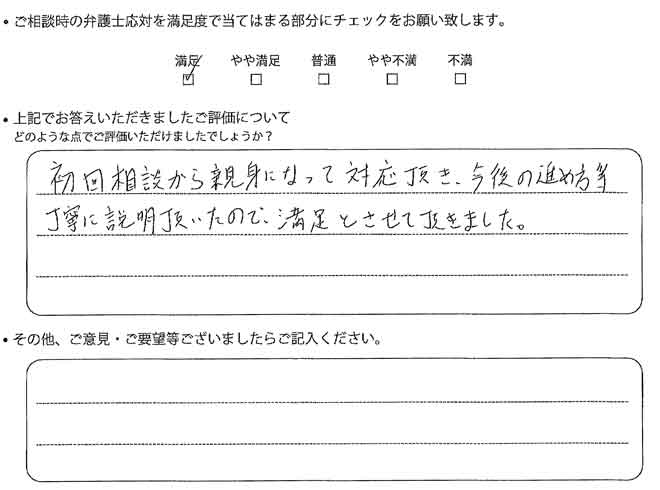 • ご相談時の弁護士応対を満足度で当てはまる部分にチェックをお願い致します。
満足 やや満足 普通 やや不満 不満
• 上記でお答えいただきましたご評価について
どのような点でご評価いただけましたでしょうか？
初回相談から親身になって対応頂き、今後の進め方等
丁寧に説明頂いたので、満足とさせて頂きました。
• その他、ご意見・ご要望等ございましたらご記入ください。